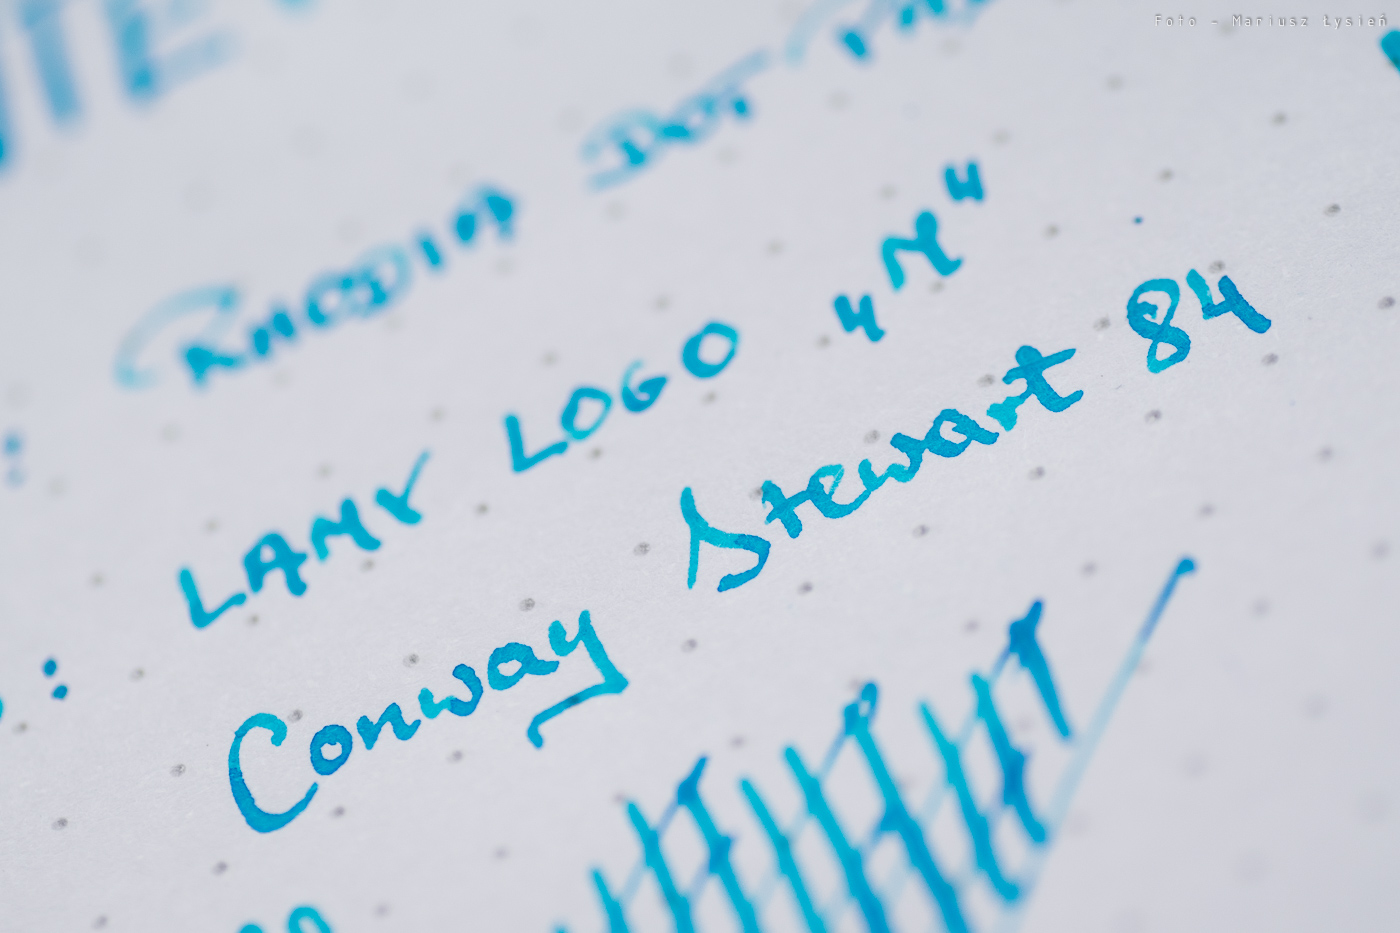 Foto - Mariusz Łysień
RHODIA DOT
LAMY LOGO "M"
Conway Stewart 84